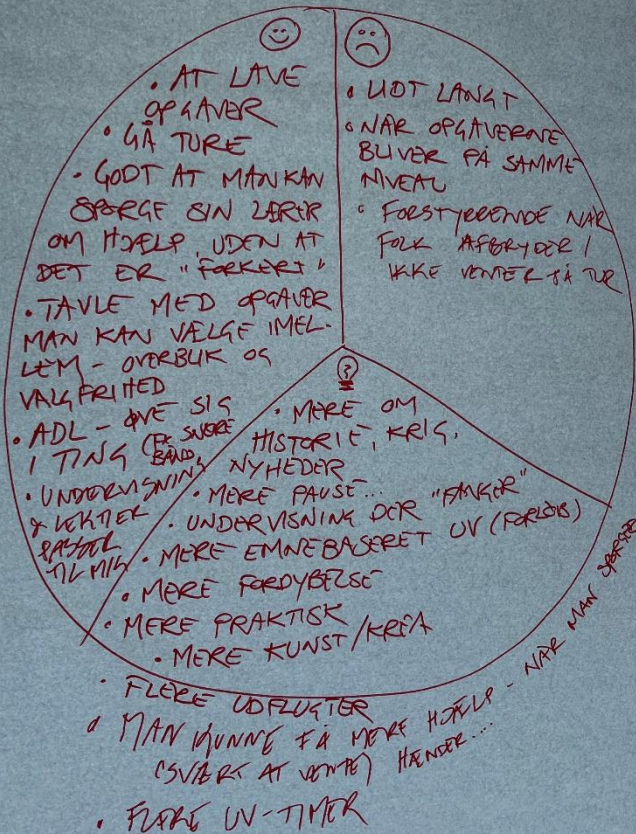 • AT LAVE
OPGAVER
• GÅ TURE
• GODT AT MAN KAN
SPØRGE SIN LÆRER
OM HJÆLP, UDEN AT
DET ER "FORKERT"
• TAVLE MED OPGAVER
MAN KAN VÆLGE IMEL-
LEM - OVERBLIK OG
VALGFRIHED
• ADL - ØVE SIG
I TING (FX SNØRE
BÅND)
• UNDERVISNING
& LEKTIER
PASSER
TIL MIG
• LIDT LANGT
• NÅR OPGAVERNE
BLIVER PÅ SAMME
NIVEAU
• FORSTYRRENDE NÅR
FOLK AFBRYDER /
IKKE VENTER PÅ TUR
• MERE OM
HISTORIE, KRIG,
NYHEDER
• MERE PAUSE...
• UNDERVISNING DER "FANGER"
• MERE EMNEBASERET UV (FORLØB)
• MERE FORDYBELSE
• MERE PRAKTISK
• MERE KUNST/KREA
• FLERE UDFLUGTER
• MAN KUNNE FÅ MERE HJÆLP - NÅR MAN SPØRGER
(SVÆRT AT VENTE) HÆNDER...
• FLERE UV-TIMER